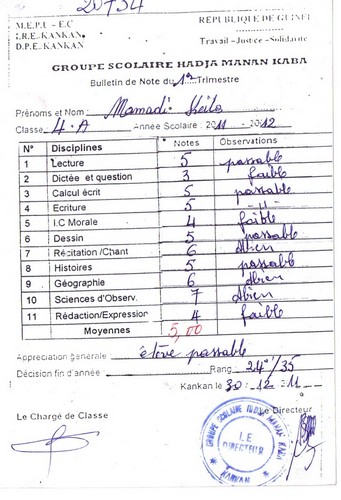 20754
M.E.P.U - E.C
I.R.E.-KANKAN.
D.P.E.-KANKAN
REPUBLIQUE DE GUINEE
Travail -Justice -Solidarité
GROUPE SCOLAIRE HADJA MANAN KABA
Bulletin de Note du 1er Trimestre
Prénoms et Nom : Mamadi Keita
Classe 4.A Année Scolaire : 2011 - 2012
N° Disciplines Notes Observations
1 Lecture 5 passable
2 Dictée et question 3 faible
3 Calcul écrit 5 passable
4 Ecriture 5 -//-
5 I.C Morale 4 faible
6 Dessin 5 passable
7 Récitation /Chant 6 Abien
8 Histoires 5 passable
9 Géographie 6 Abien
10 Sciences d'Observ. 7 Abien
11 Rédaction/Expression 4 faible
Moyennes 5,00
Appreciation génerale élève passable
Décision fin d'année Rang 24e/35
Kankan le 30-12-11
Le Chargé de Classe Le Directeur
GROUPE SCOLAIRE HADJA MANAN KABA
LE DIRECTEUR
KANKAN